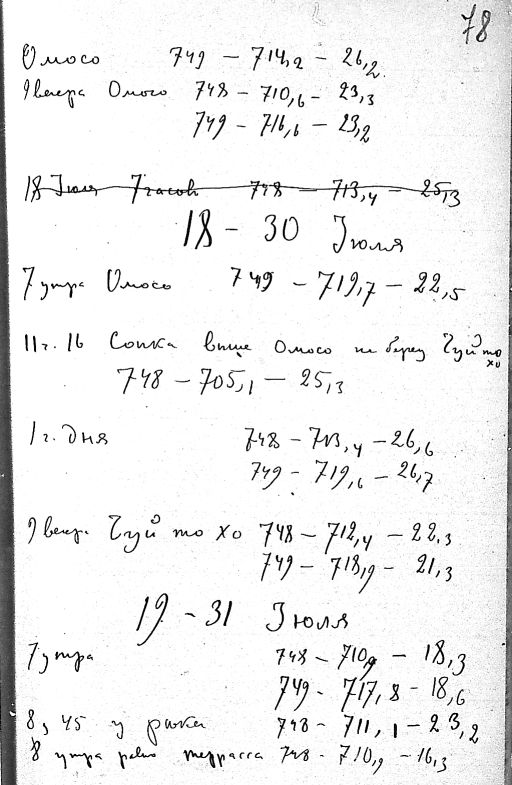 78
Омосо 749 – 714,2 – 26,2
9 вечера Омосо 748 – 710,6 – 23,3
749 – 716,6 – 23,2
18 Июля 7 часов 748 – 713,4 – 25,3
18 – 30 Июля
7 утра Омосо 749 – 719,7 – 22,5
11 г. 16 Сопка выше Омосо на берег Гуй то хо
748 – 705,1 – 25,3
1 г. дня 748 – 713,4 – 26,6
749 – 719,6 – 26,7
9 вечера Гуй то хо 748 – 712,4 – 22,3
749 – 718,9 – 21,3
19 – 31 Июля
7 утра 748 – 710,9 – 18,3
749 – 717,8 – 18,6
8, 45 у 748 – 711,1 – 23,2
8 утра терраса 748 – 710,9 – 16,3